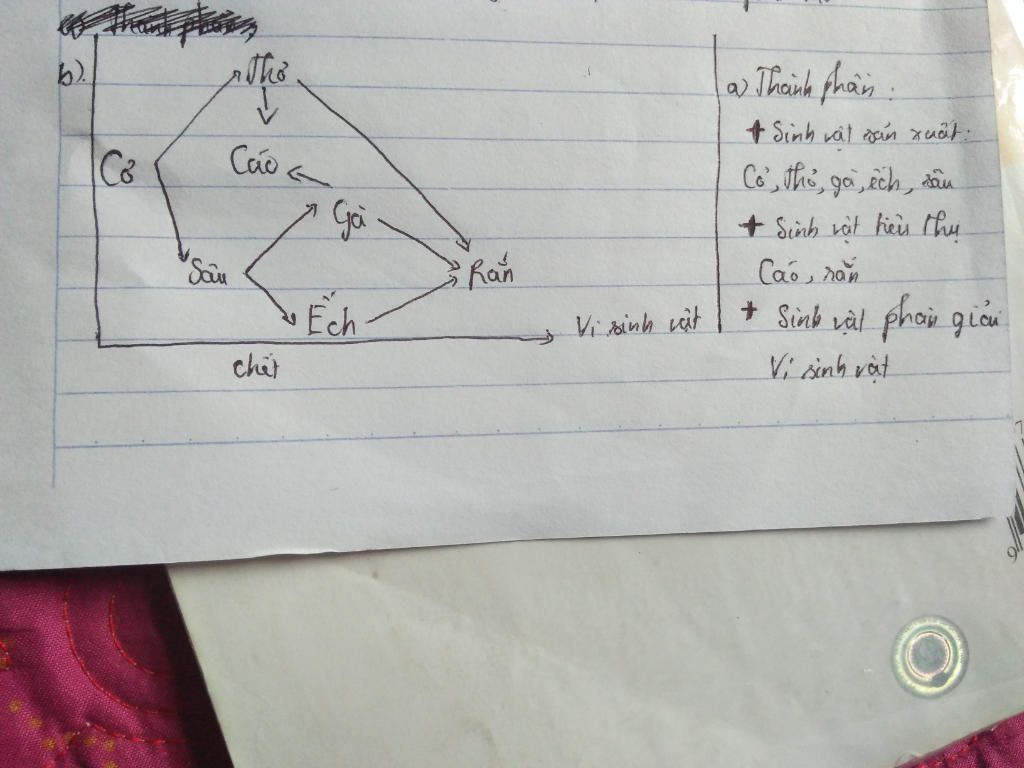 b).
Thỏ
Cỏ
Cáo
Gà
Sâu
Rắn
Ếch
Vi sinh vật
chết
a) Thành phần :
+ Sinh vật sản xuất :
Cỏ, thỏ, gà, ếch, sâu
+ Sinh vật tiêu thụ
Cáo, rắn
+ Sinh vật phân giải
Vi sinh vật